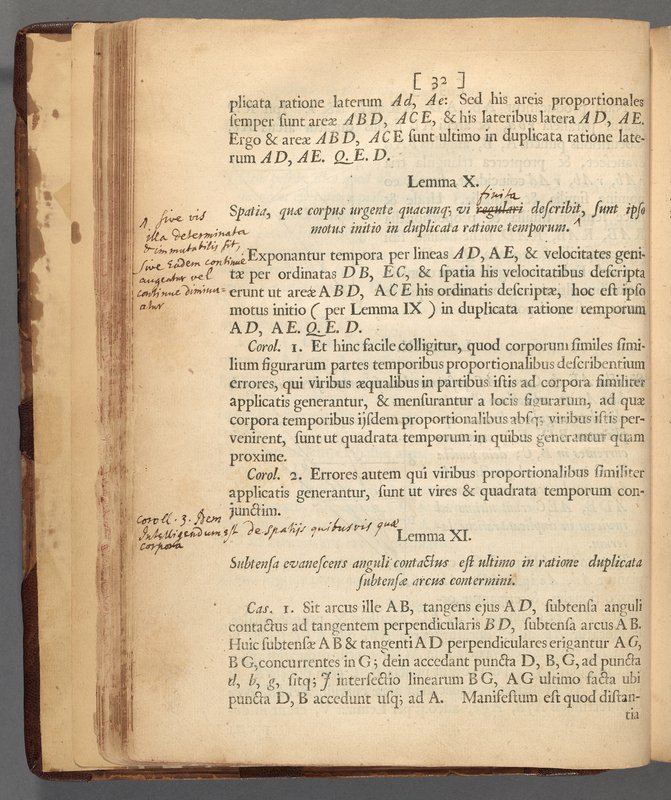 [ 32 ]
plicata ratione laterum Ad, Ae: Sed his areis proportionales
semper sunt areæ ABD, ACE, & his lateribus latera AD, AE.
Ergo & areæ ABD, ACE sunt ultimo in duplicata ratione late-
rum AD, AE. Q. E. D.
Lemma X.
finita
Spatia, quæ corpus urgente quacunq; vi regulari describit, sunt ipso
motus initio in duplicata ratione temporum. ^
^. sive vis
illa determinata
& immutabilis sit,
sive Eadem continuo
augeatur vel
continuo diminu=
atur
Exponantur tempora per lineas AD, AE, & velocitates geni-
tæ per ordinatas DB, EC, & spatia his velocitatibus descripta
erunt ut areæ ABD, ACE his ordinatis descriptæ, hoc est ipso
motus initio ( per Lemma IX ) in duplicata ratione temporum
AD, AE. Q. E. D.
Corol. 1. Et hinc facile colligitur, quod corporum similes simi-
lium figurarum partes temporibus proportionalibus describentium
errores, qui viribus æqualibus in partibus istis ad corpora similiter
applicatis generantur, & mensurantur a locis figurarum, ad quæ
corpora temporibus ijsdem proportionalibus absq; viribus istis per-
venirent, sunt ut quadrata temporum in quibus generantur quam
proxime.
Corol. 2. Errores autem qui viribus proportionalibus similiter
applicatis generantur, sunt ut vires & quadrata temporum con-
junctim.
coroll. 3. Idem
Intelligendum est de spatijs quibusvis quæ
corpora
Lemma XI.
Subtensa evanescens anguli contactus est ultimo in ratione duplicata
subtensæ arcus contermini.
Cas. 1. Sit arcus ille AB, tangens ejus AD, subtensa anguli
contactus ad tangentem perpendicularis BD, subtensa arcus AB.
Huic subtensæ AB & tangenti AD perpendiculares erigantur AG,
BG, concurrentes in G; dein accedant puncta D, B, G, ad puncta
d, b, g, sitq; J intersectio linearum BG, AG ultimo facta ubi
puncta D, B accedunt usq; ad A. Manifestum est quod distan-
tia